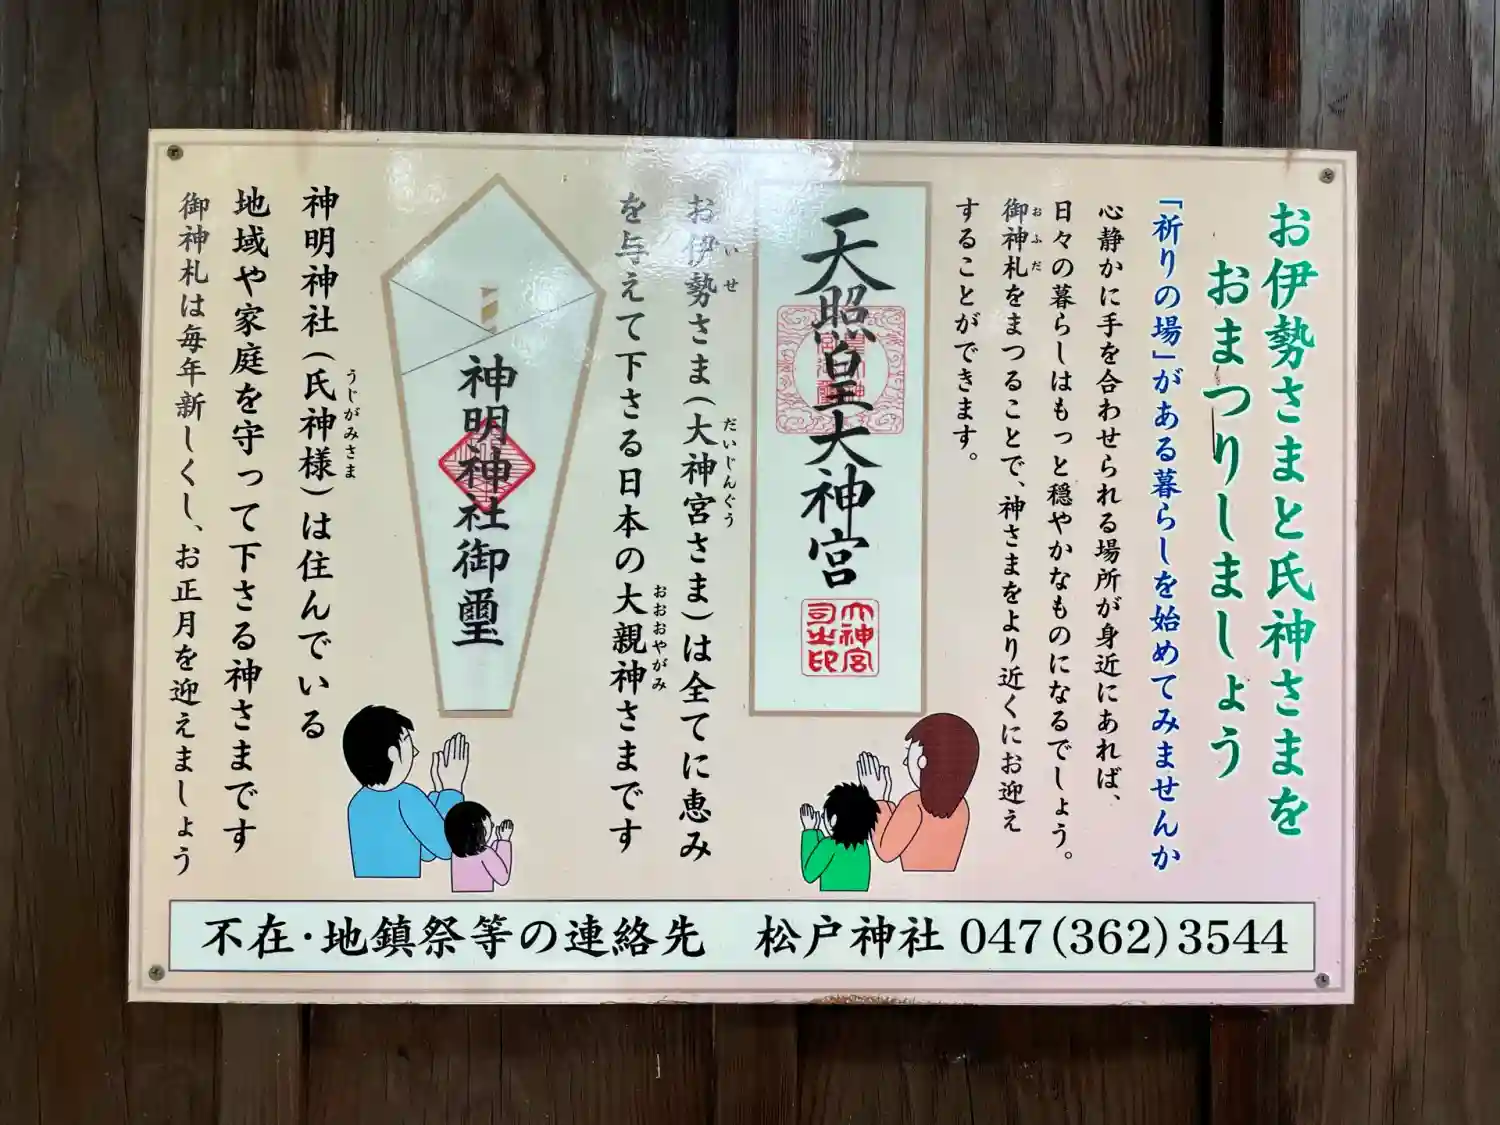 お伊勢さまと氏神さまを
おまつりしましょう
「祈りの場」がある暮らしを始めてみませんか
心静かに手を合わせられる場所が身近にあれば、
日々の暮らしはもっと穏やかなものになるでしょう。
御神札をまつることで、神さまをより近くにお迎え
おふだ
することができます。
天照皇大神宮
大神宮
司之印
お伊勢さま(大神宮さま)は全てに恵み
いせ
だいじんぐう
を与えて下さる日本の大親神さまです
おおおやがみ
神明神社御璽
神明神社(氏神様)は住んでいる
うじがみさま
地域や家庭を守って下さる神さまです
御神札は毎年新しくし、お正月を迎えましょう
不在・地鎮祭等の連絡先 松戸神社 047(362)3544